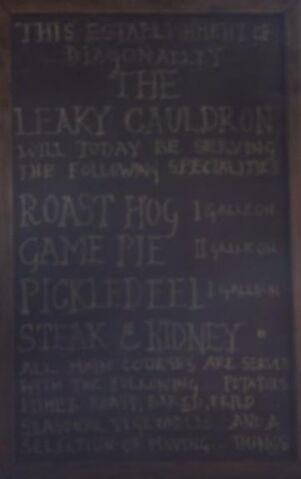 THIS ESTABLISHMENT OF
DIAGONALLY
THE
LEAKY CAULDRON
WILL TODAY BE SERVING
THE FOLLOWING SPECIALITIES
ROAST HOG I GALLEON
GAME PIE II GALLEON
PICKLED EEL I GALLEON
STEAK & KIDNEY
ALL MAIN COURSES ARE SERVED
WITH THE FOLLOWING POTATOES
ROAST, BAKED, FRIED
SEASONAL VEGETABLES AND A
SELECTION OF MOVING THINGS